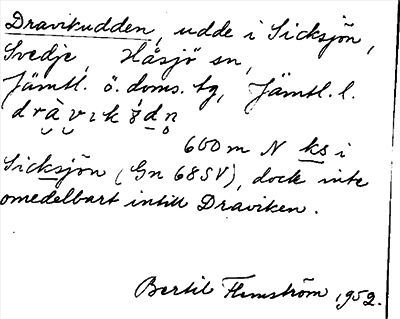 Dravikudden, udde i Sicksjön,
Svedje, Håsjö sn,
Jämtl. ö. doms. tg, Jämtl. l.
600 m N ks i
Sicksjön (Gn 68SV), dock inte
omedelbart intill Draviken.
Bertil Flemström 1952.